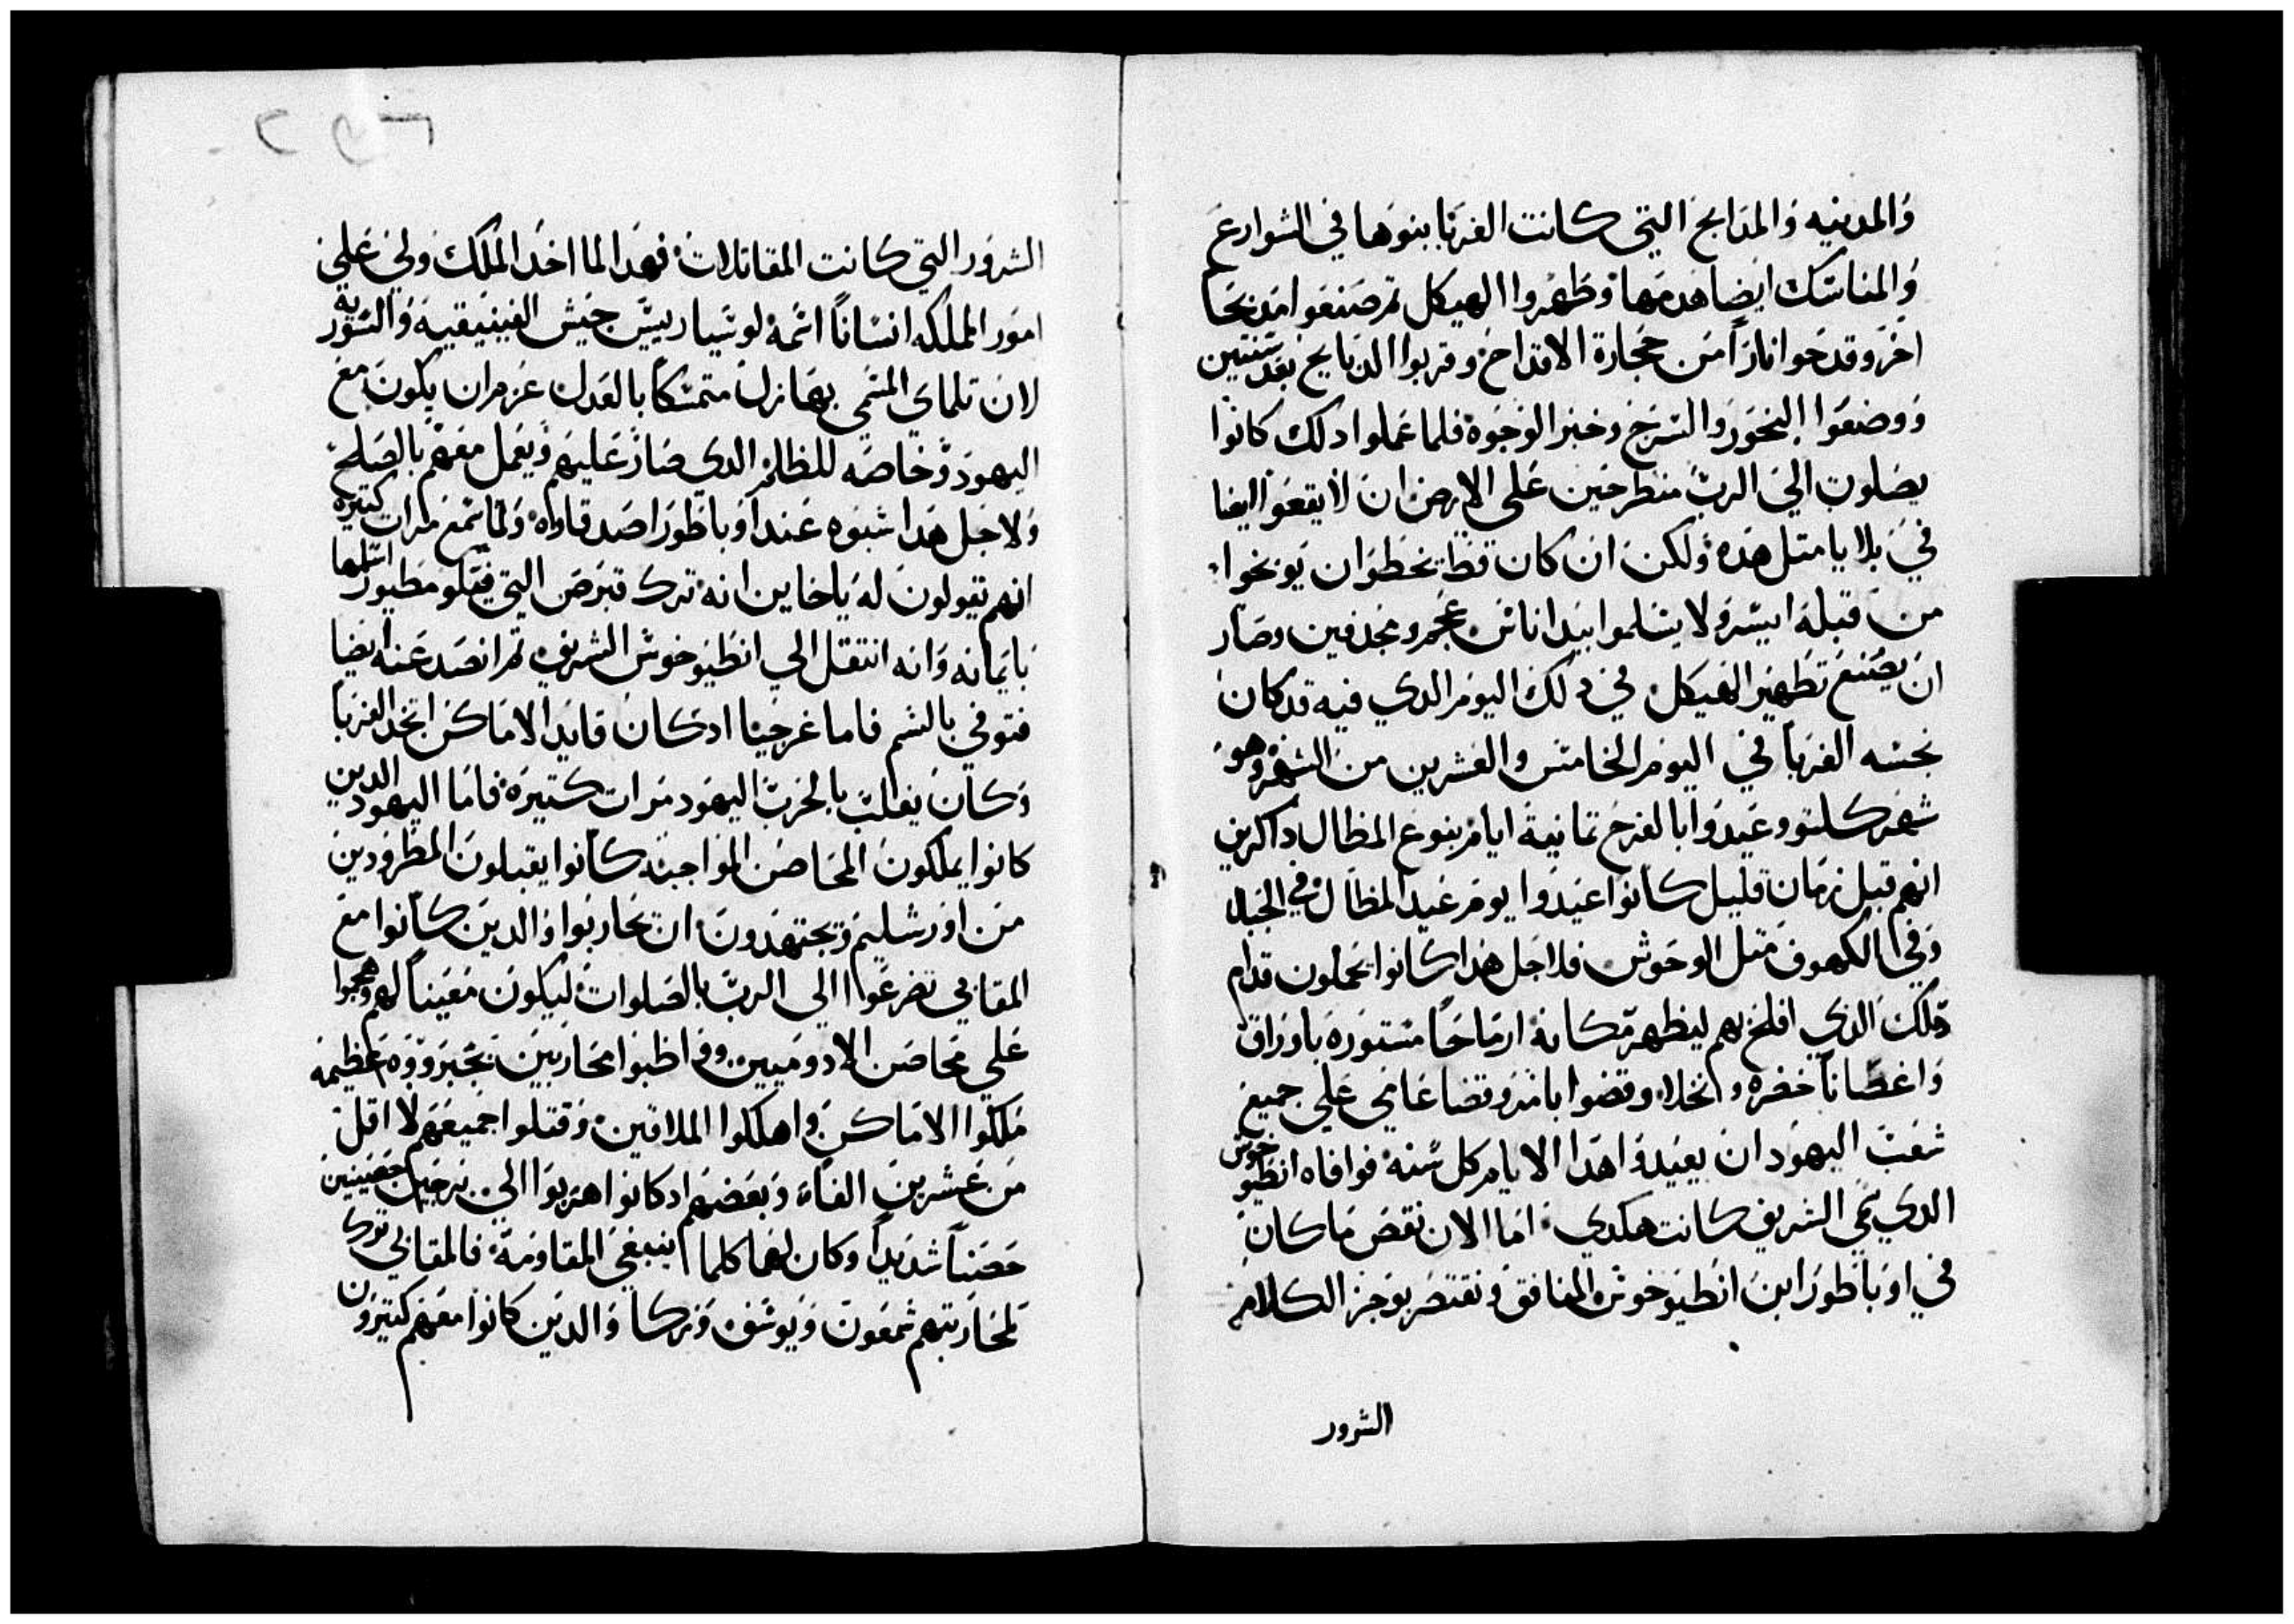 والمدينه والمدابح التي كانت الغربا بنوها في الشوارع
والمناسك ايضا هدمها وطهروا الهيكل تم صنعوا مدبحا
اخر وقدحوا نارا من حجارة الاقداح وقربوا الدبايح بعد سنتين
ووضعوا البخور والسرج وخبز الوجوه فلما عملوا دلك كانوا
يصلون الي الرب منطرحين علي الارض ان لا يقعوا ايضا
في بلايا متل هده ولكن ان كان قط تخطوا ان يوبخوا
من قبله ايسر ولا يسلموا بيد اناس عجم ومجدفين وصار
ان يصنع تطهير الهيكل في دلك اليوم الدي فيه قد كان
نجسه الغربا في اليوم الخامس والعشرين من الشهر وهو
شهر كسلتو وعيدوا بالفرح تمانية ايام بنوع المظال داكرين
انهم قبل زمان قليل كانوا عيدوا يوم عيد المظال في الجبال
وفي الكهوف متل الوحوش فلاجل هدا كانوا يحملون قدام
دلك الدي افلح بهم ليطهر مكانه ارماحا مستوره باوراق
واغصانا خضره ونخلا وقضوا بامر وقضا عامي علي جميع
شعب اليهود ان يعيدوا هدا الايام كل سنه فوافاه انطيوخوش
الدي سمي الشريف كانت هكدي اما الان نقص ما كان
في اوباطور ابن انطيوخوش المنافق ونقتصر بوجز الكلام
الشرور
الشرور التي كانت المقاتلات فهدا لما اخد الملك ولي علي
امور المملكه انسانا اسمه لوسيا رييس جيش الفينيقيه والسوريه
لان تلماي المسمي بهازل متمسكا بالعدل عزم ان يكون مع
اليهود وخاصه للظلم الدي صار عليهم ويعمل معهم بالصلح
ولاجل هدا شبوه عند اوباطور اصدقاوه ولما سمع مرات كتيره
انهم يقولون له يا خاين انه ترك قبرص التي فيلومطيور اسلمها
بايمانه وانه انتقل الي انطيوخوش الشريف تم انصد عنه ايضا
فتوفي بالسم فاما غرجيا ادكان قايد الاماكن اتخد الغربا
وكان يغلب بالحرب اليهود مرات كتيره فاما اليهود الدين
كانوا يملكون المحاصن المواجبه كانوا يقبلون المطرودين
من اورشليم ويجتهدون ان يحاربوا والدين كانوا مع
المقابي تضرعوا الي الرب بالصلوات ليكون معينا لهم وهجموا
علي محاصن الادوميين وواظبوا محاربين بجبروه عظيمه
ملكوا الاماكن واهلكوا الملاقين وقتلوا جميعهم لا اقل
من عشرين الفا وبعضهم ادكانوا هربوا الي برجين حصينين
حصنا شديدا وكان لهما كلما ينبغي المقاومة فالمقابي ترك
لمحاربتهم شمعون ويوسف وزكا والدين كانوا معهم كتيرون